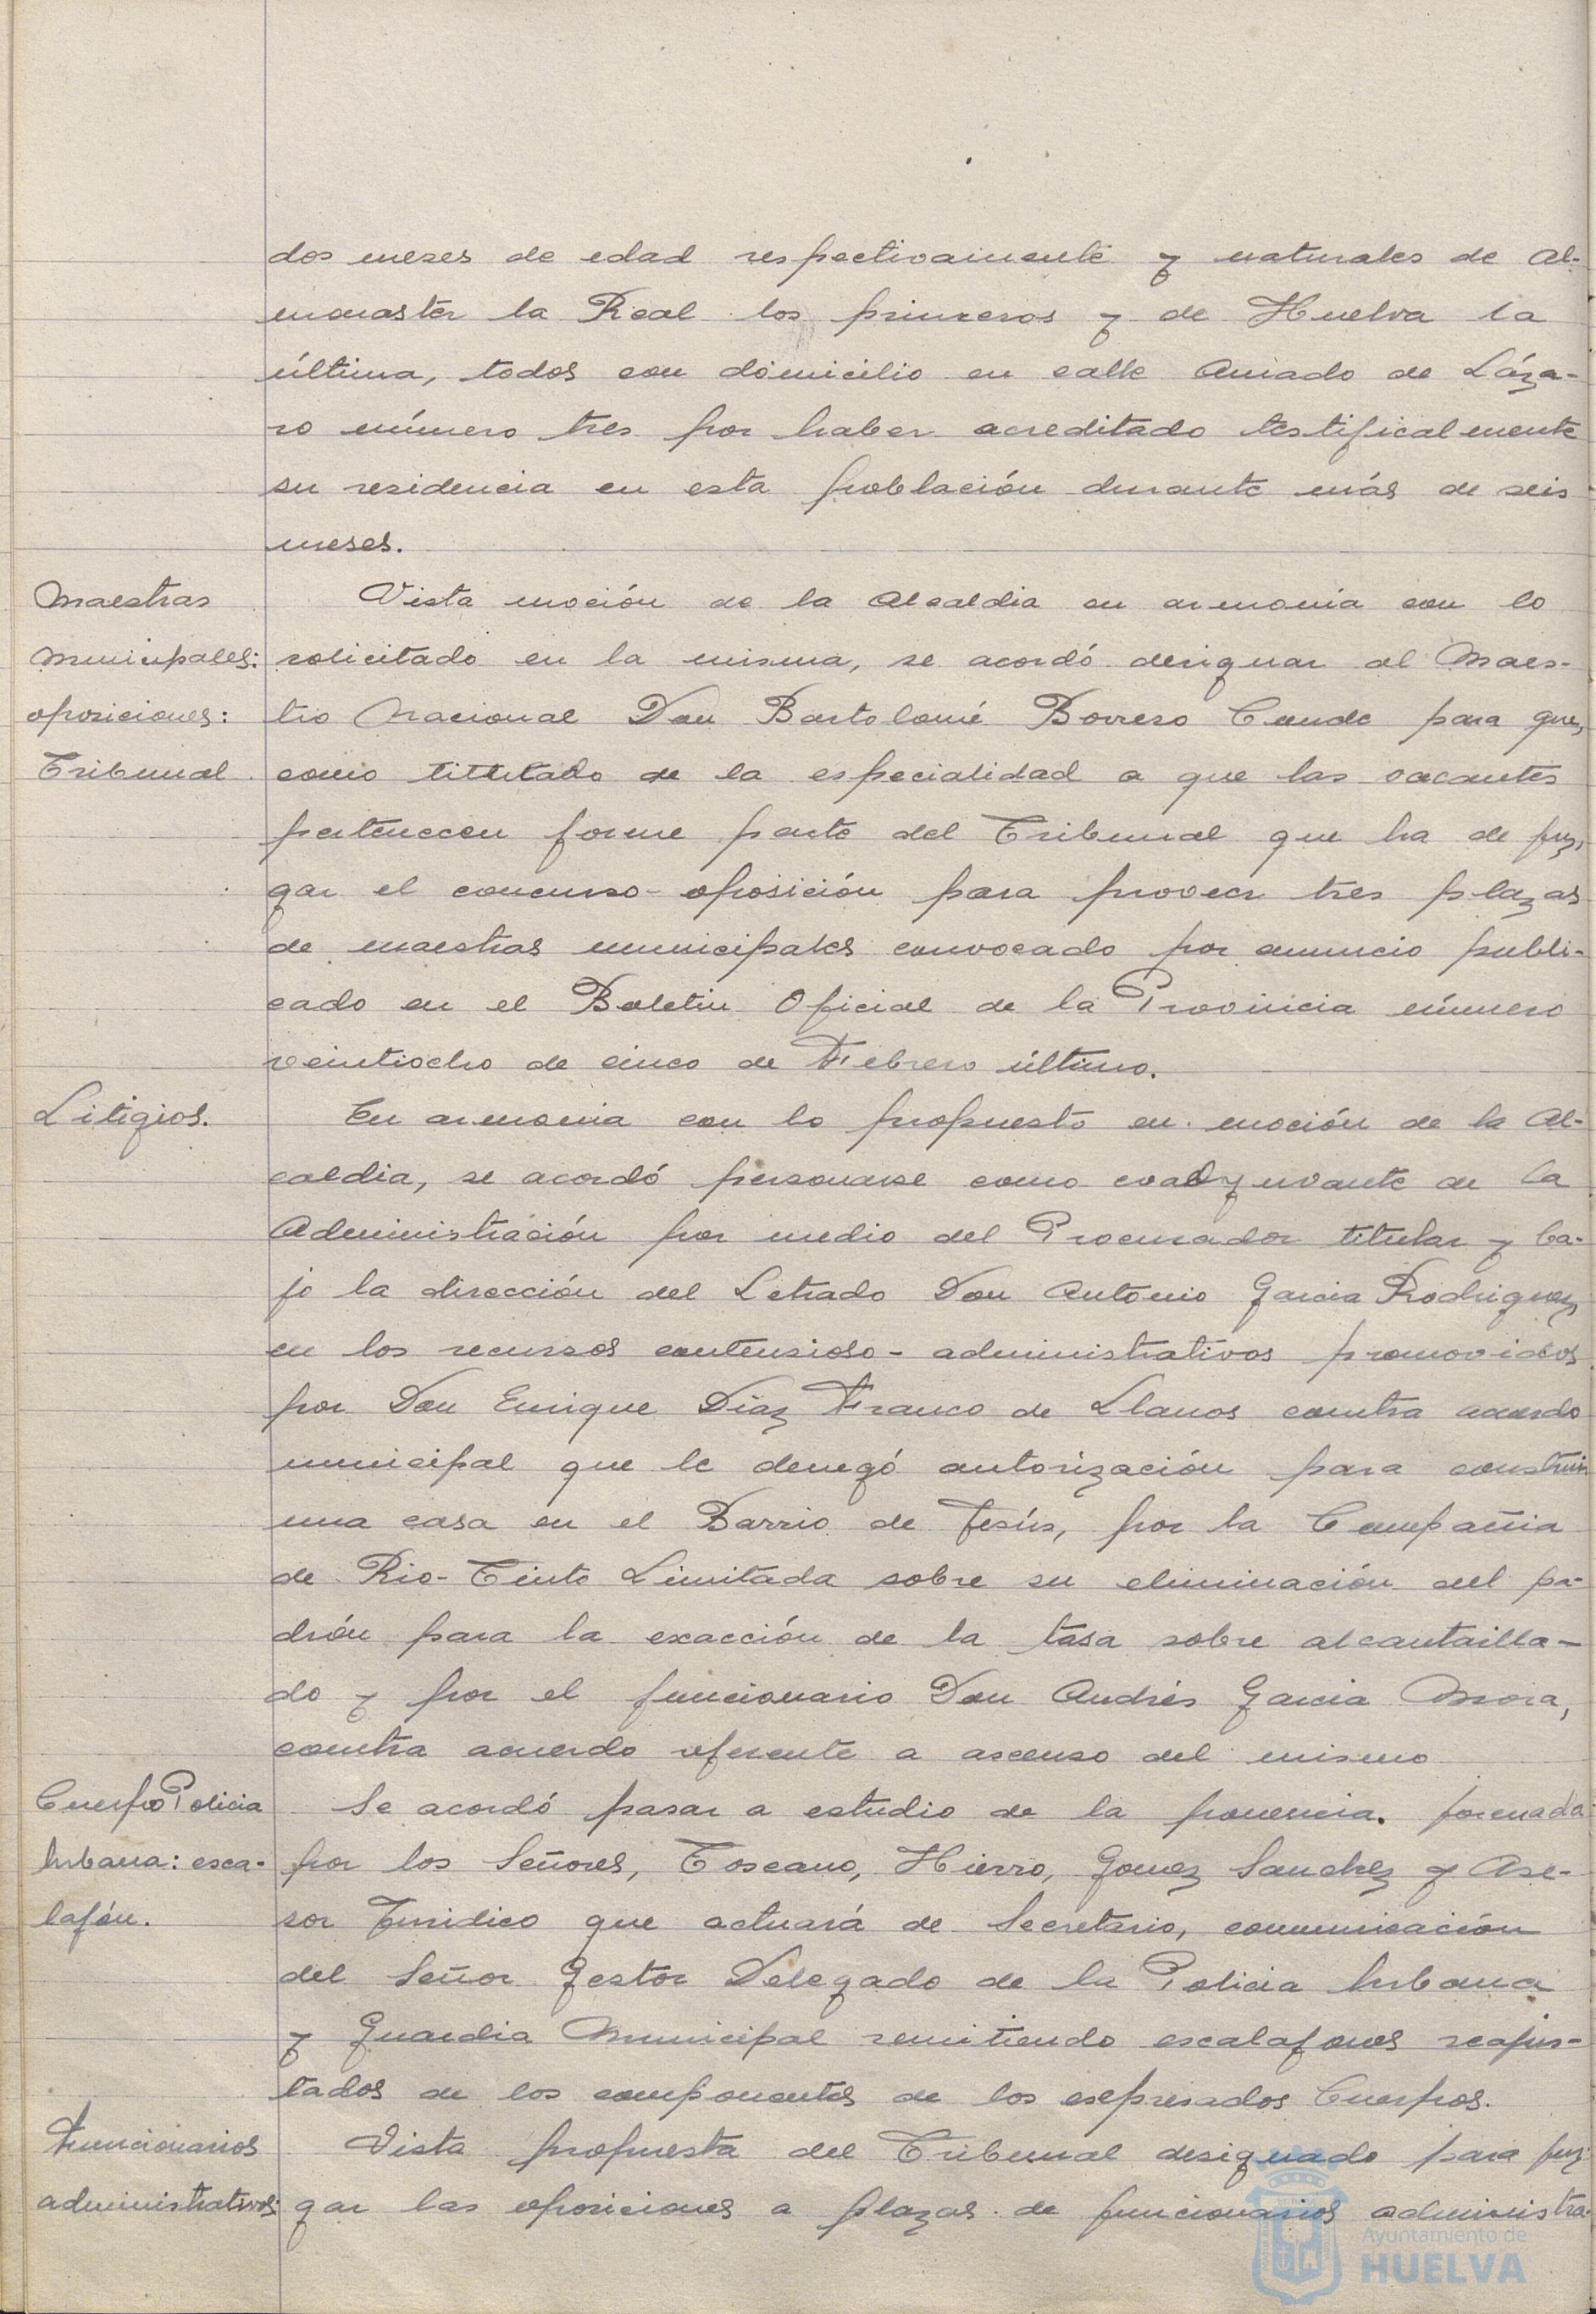 dos meses de edad respectivamente y naturales de Al-
monaster la Real los primeros y de Huelva la
última, todos con domicilio en calle Amado de Láza-
ro número tres por haber acreditado testificalmente
su residencia en esta población durante más de seis
meses.
Maestras
municipales:
oposiciones:
Tribunal
Vista moción de la Alcaldia en armonia con lo
solicitado en la misma, se acordó designar al Maes-
tro Nacional Don Bartolomé Borrero Conde para que,
como titulado de la especialidad a que las vacantes
pertenecen forme parte del Tribunal que ha de juz-
gar el concurso-oposición para proveer tres plazas
de maestras municipales convocado por anuncio publi-
cado en el Boletin Oficial de la Provincia número
veintiocho de cinco de Febrero último.
Litigios.
En armonia con lo propuesto en moción de la Al-
caldia, se acordó personarse como coadyuvante de la
Administración por medio del Procurador titular y ba-
jo la dirección del Letrado Don Antonio Garcia Rodriguez
en los recursos contensioso-administrativos promovidos
por Don Enrique Diaz Franco de Llanos contra acuerdo
municipal que le denegó autorización para construir
una casa en el Barrio de Jesús, por la Compañia
de Rio-Tinto Limitada sobre su eliminación del pa-
drón para la exacción de la tasa sobre alcantailla-
do y por el funcionario Don Andrés Garcia Mora,
contra acuerdo referente a ascenso del mismo
Cuerpo Policia
Urbana: esca-
lafón.
Se acordó pasar a estudio de la ponencia. formada
por los Señores, Toscano, Hierro, Gomez Sanchez y Ase-
sor Juridico que actuará de Secretario, comunicación
del Señor Gestor Delegado de la Policia Urbana
y Guardia Municipal remitiendo escalafones reajus-
tados de los componentes de los expresados Cuerpos.
Funcionarios
administrativos:
Vista propuesta del Tribunal designado para juz-
gar las oposiciones a plazas de funcionarios administra-
Ayuntamiento de
HUELVA